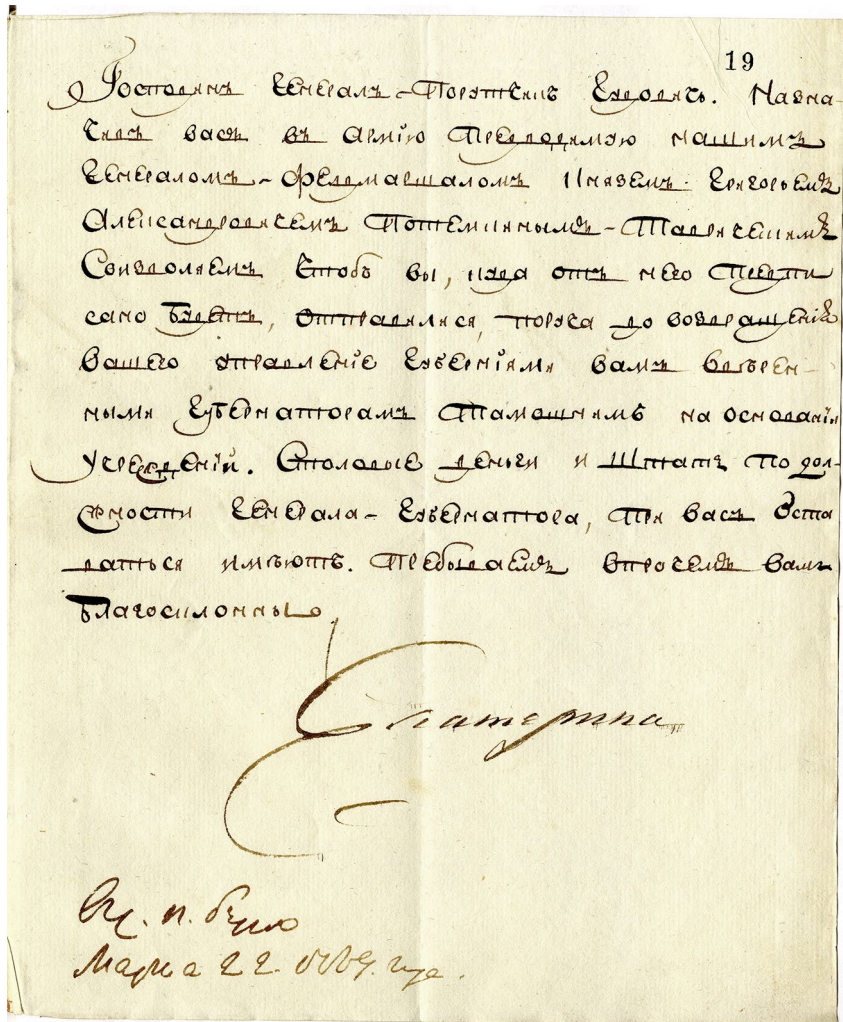 19
Господинъ Генералъ-Порутчикъ Гудовичь. Назна-
чивъ васъ въ армiю Предводимую нашимъ
Генераломъ-Фельдмаршаломъ Княземъ Григорьемъ
Александровичемъ Потемкинымъ-Таврическимъ
Соизволяемъ Чтобъ вы, куда отъ него Предпи
сано Будетъ, Отправилися, поруча до возвращенiя
вашего управленiе Губернiями вамъ ввѣрен-
ными Губернаторамъ Тамошнимъ на основанiи
Учрежденiй. Столовые деньги и Штатъ По дол-
жности Генерала-Губернатора, При васъ Оста
ваться имѣютъ. Пребываемъ впрочемъ вамъ
Благосклонны.
Екатерина
Марта 22. 1789. года.